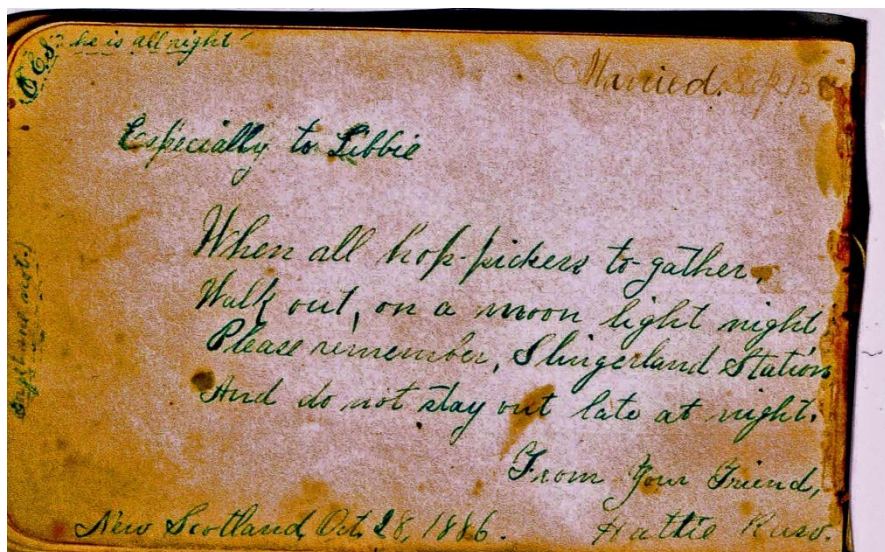 he is all right
Married. Sep 15
Especially to Libbie
When all hop-pickers to-gather,
Walk out, on a moon light night
Please remember, Slingerland Station
And do not stay out late at night.
From Your Friend,
New Scotland, Oct. 28, 1886. Hattie